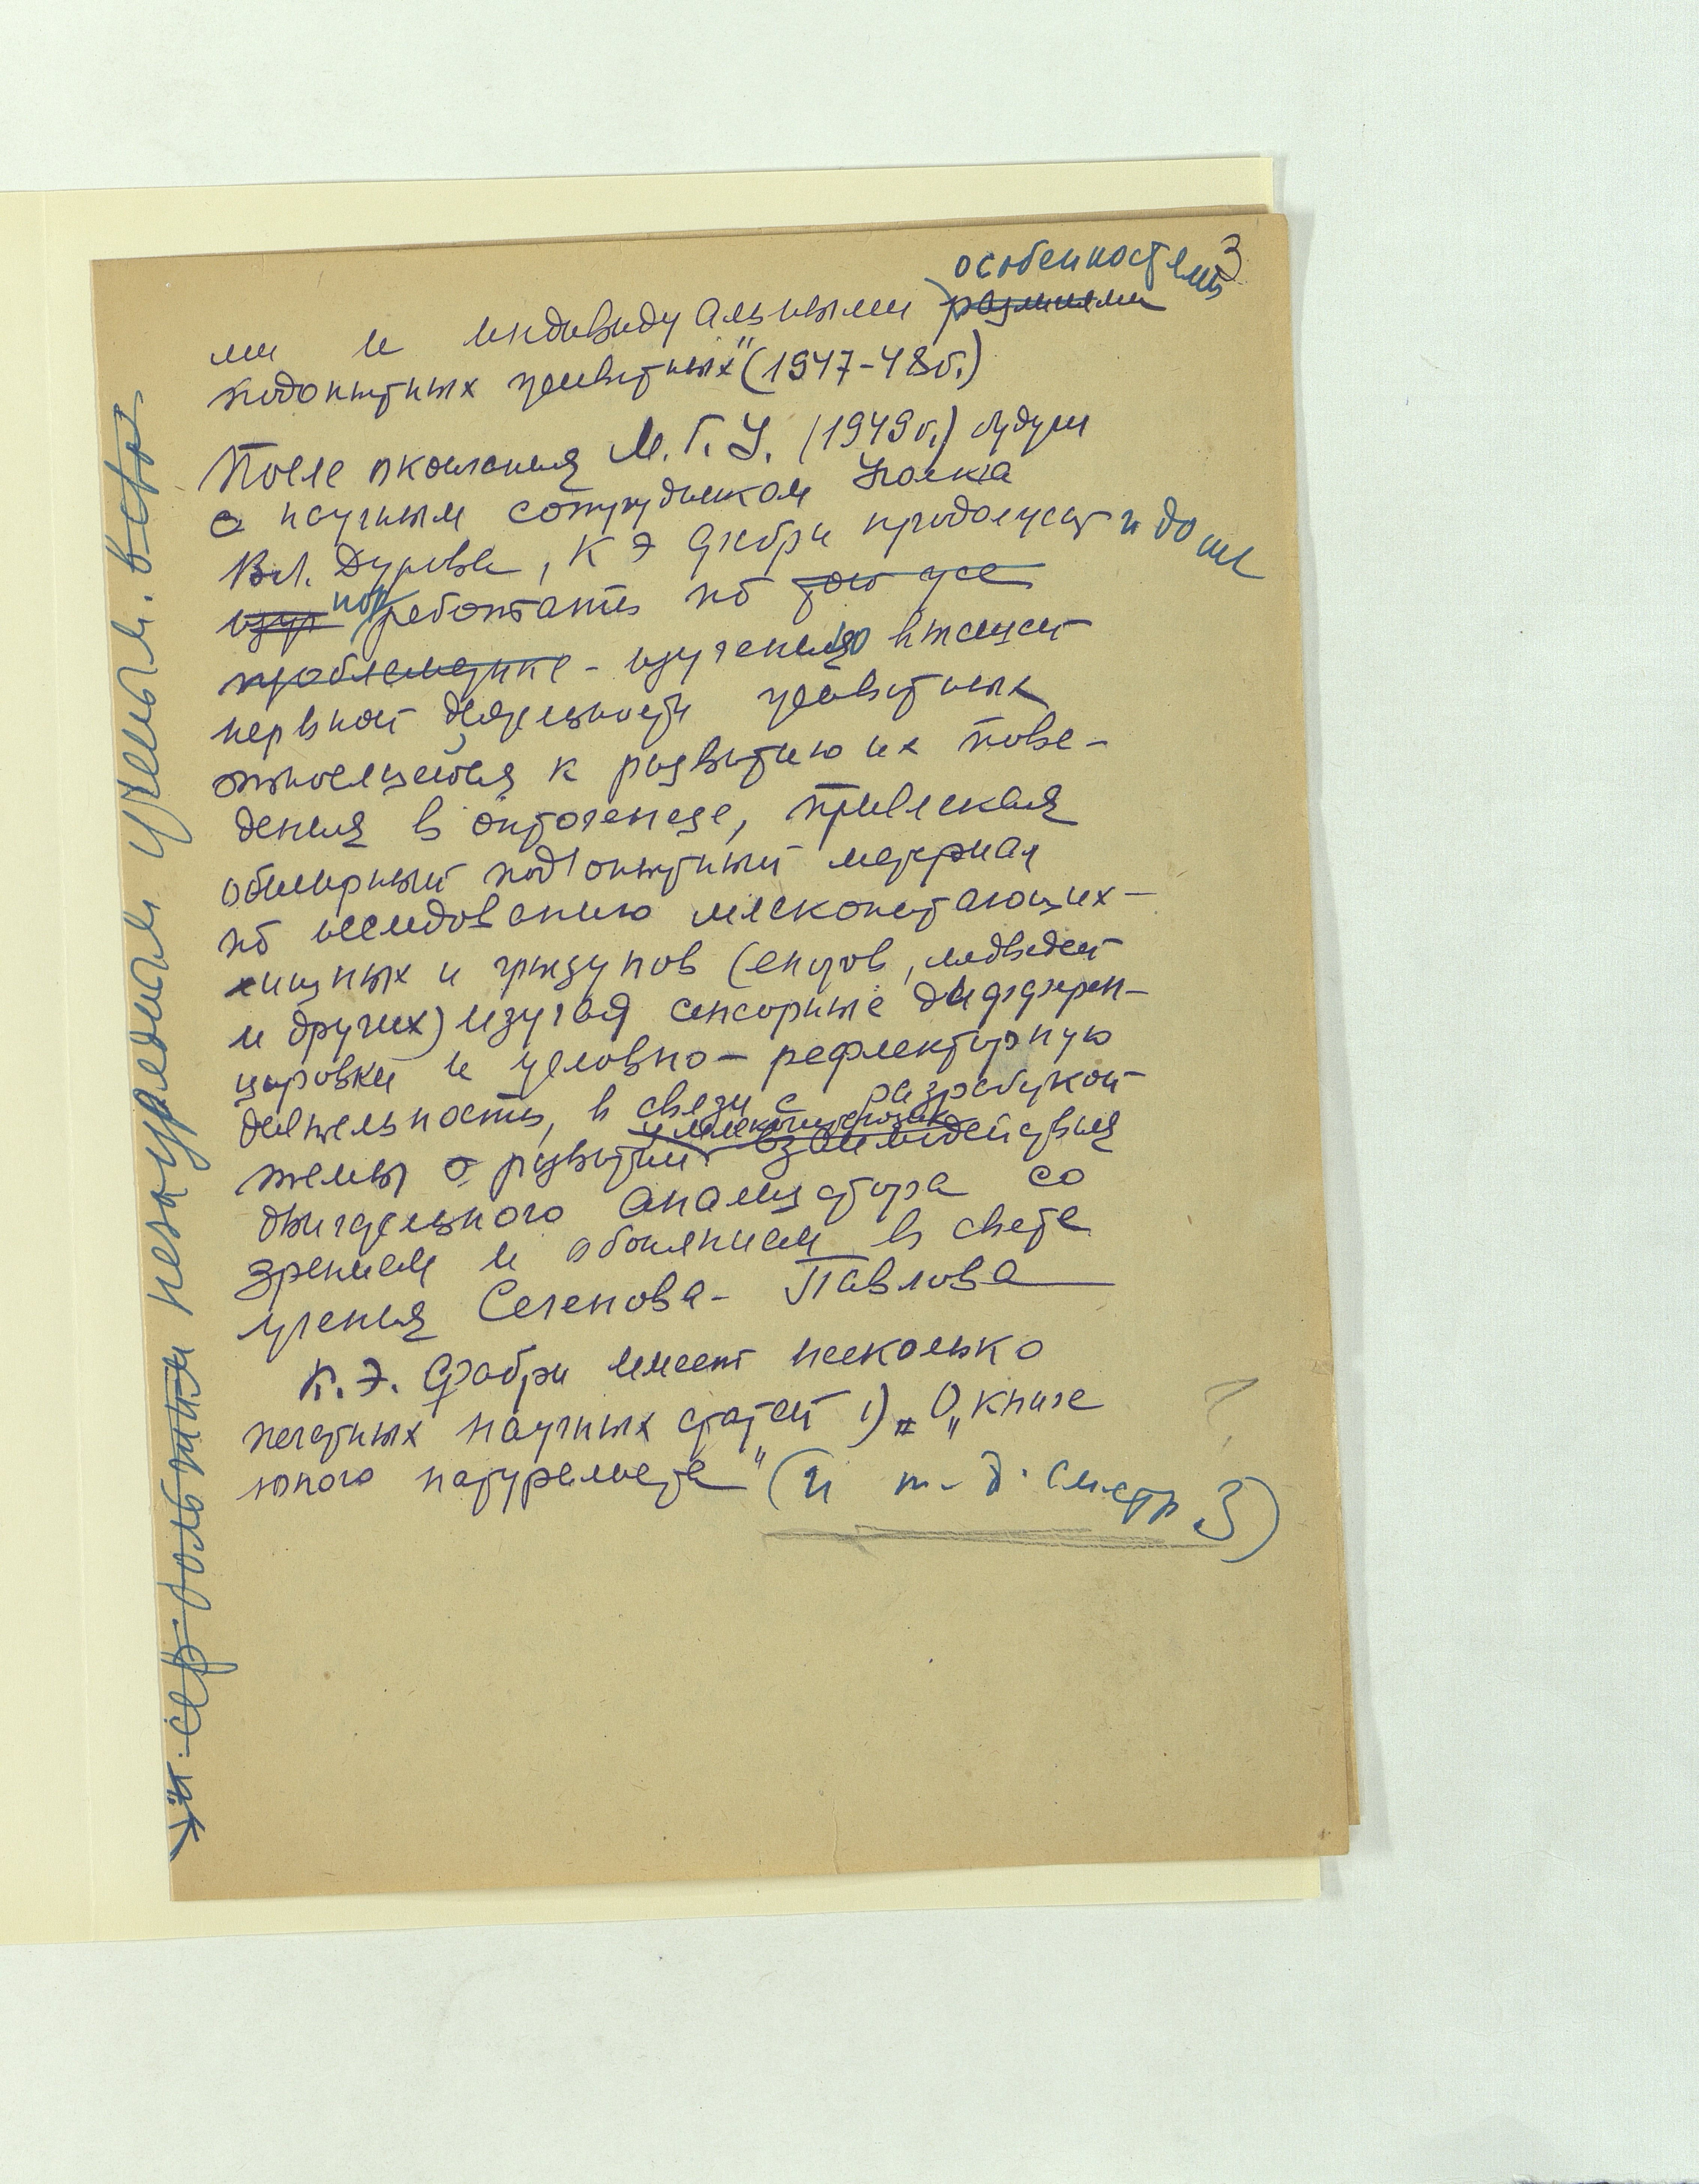 3
особенностями
ми и индивидуальными различиями
подопытных животных" (1947-48г.)
После окончания М.Г.У. (1949г.) будучи
научным сотрудником Уголка
Вл. Дурова, К Э Фабри продолжает и дальше
изуч поработать по той же
проблематике - изучению высшей
нервной деятельности животных
относящейся к развитию их пове-
дения в онтогенезе, привлекая
обширный подопытный материал
по исследованию млекопитающих -
хищных и грызунов (енотов, медведей
и других) изучая сенсорные дифферен-
цировки и условно-рефлекторную
деятельность, в связи с разработкой
темы о развитии взаимодействия
двигательного анализатора со
зрением и обонянием в свете
учения Сеченова-Павлова
К.Э. Фабри имеет несколько
печатных научных статей 1) „О „книге
юного натуралиста" (и т.д. см стр 3)
незаурядным ученым. в-сть